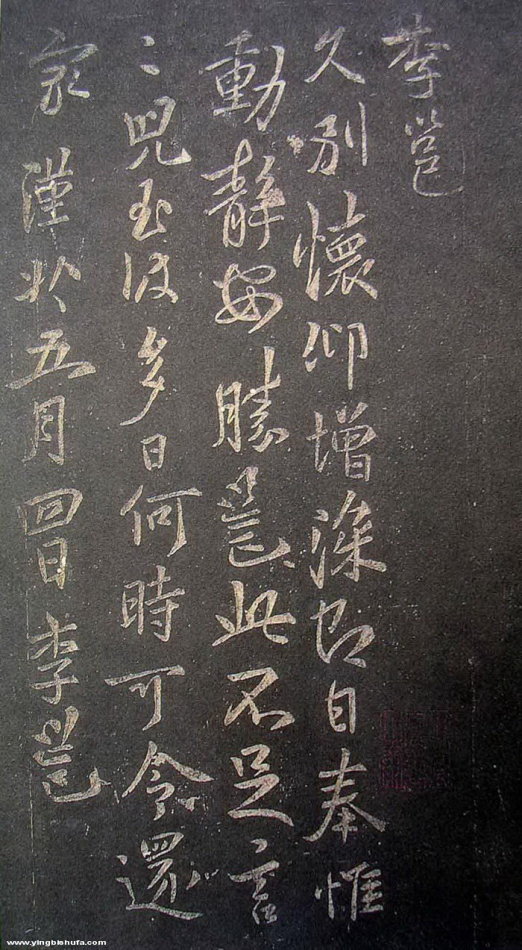 李邕
久別懷仰增深自奉惟
動靜安勝邕此不足言
〻兒至彼多日何時可令還
家謹狀五月四日李邕
www.yingbishufa.com